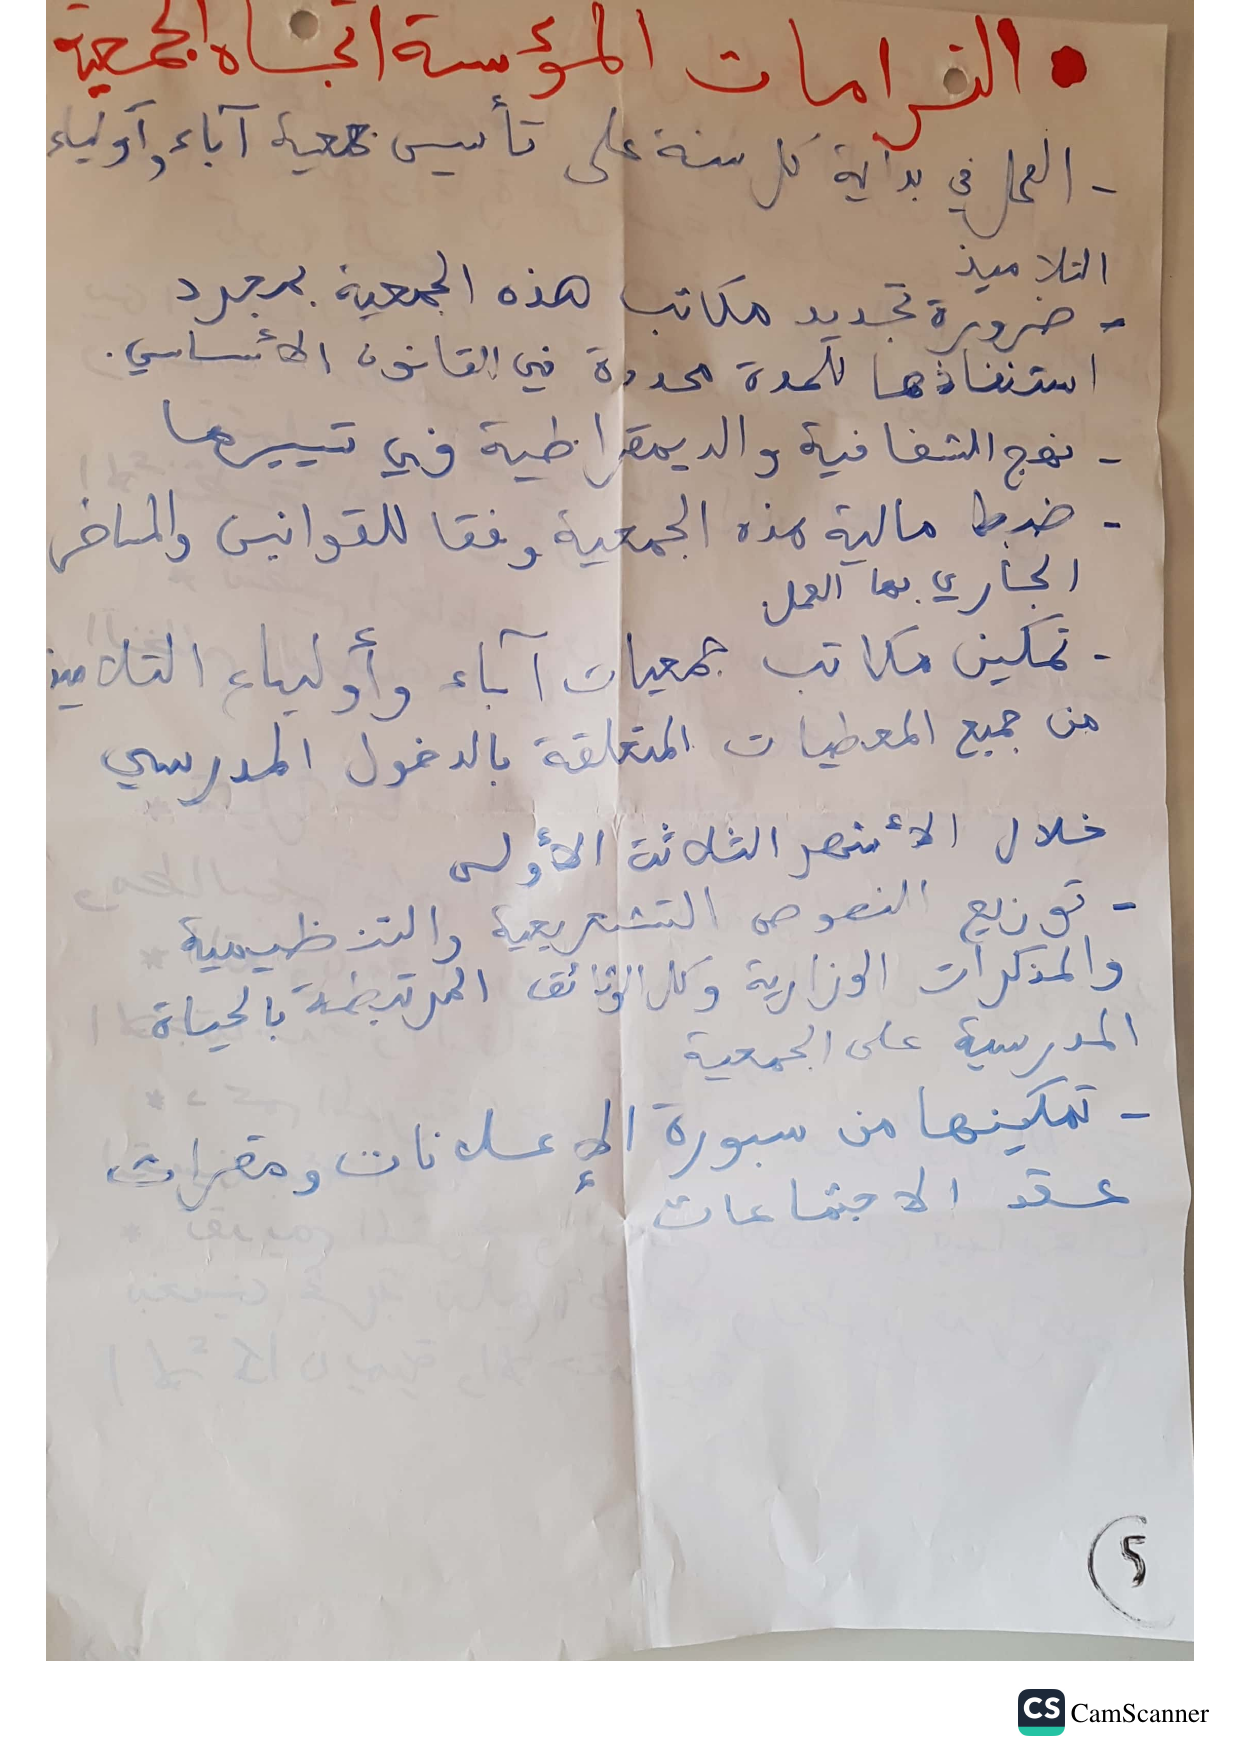 • التزامات المؤسسة اتجاه الجمعية
- العمل في بداية كل سنة على تأسيس جمعية آباء وأولياء
التلاميذ
- ضرورة تجديد مكاتب هذه الجمعية بمجرد
استنفاذها للمدة محددة في القانون الأساسي.
- نهج الشفافية والديمقراطية في تسييرها
- ضبط مالية هذه الجمعية وفقا للقوانين والمساطر
الجاري بها العمل
- تمكين مكاتب جمعيات آباء وأولياء التلاميذ
من جميع المعطيات المتعلقة بالدخول المدرسي
خلال الأشهر الثلاثة الأولى
- توزيع النصوص التشريعية والتنظيمية
والمذكرات الوزارية وكل الوثائق المرتبطة بالحياة
المدرسية على الجمعية
- تمكينها من سبورة الإعلانات ومقرات
عقد الاجتماعات
5
CS CamScanner